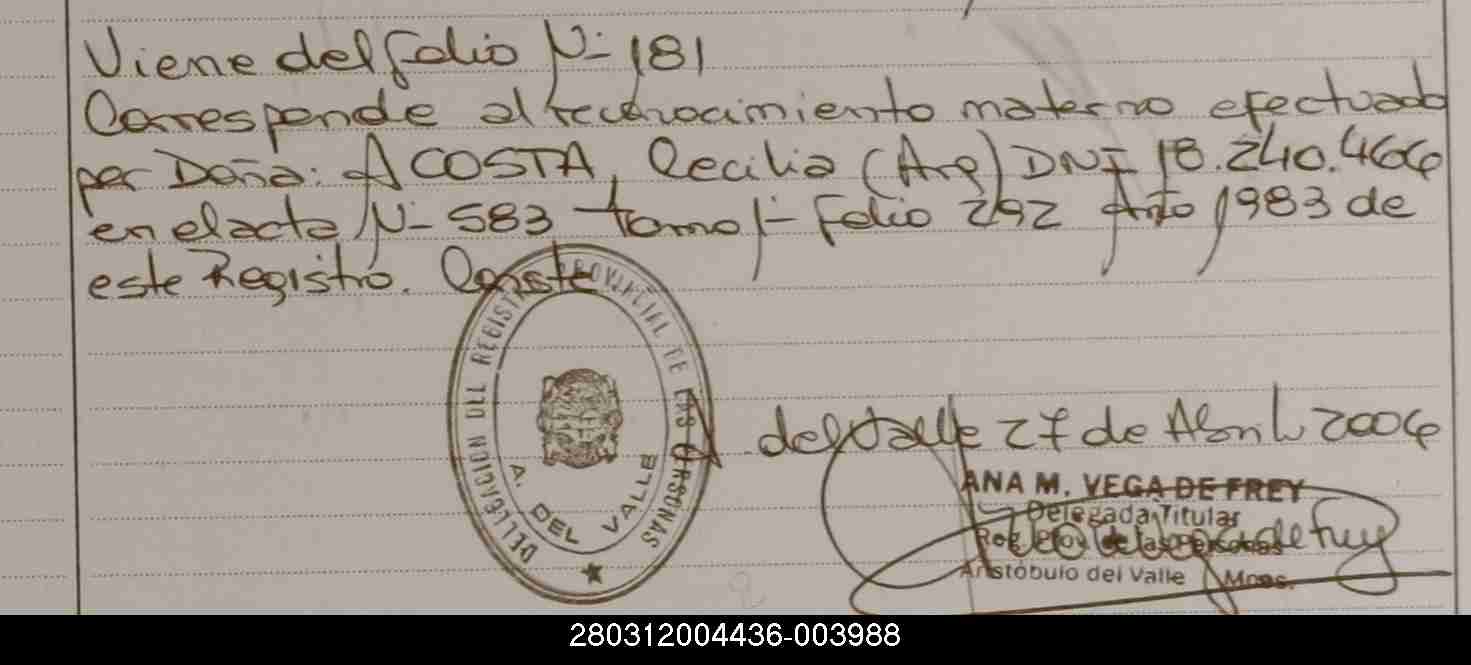 Viene del folio Nº 181
Corresponde al reconocimiento materno efectuado
por Doña: ACOSTA, Cecilia (Arg) DNI 18.240.466
en el acta Nº 583 tomo 1º folio 292 Año 1983 de
este Registro. Conste
DELEGACION DEL REGISTRO PROVINCIAL DE LAS PERSONAS
A. DEL VALLE
A. del Valle 27 de Abril 2006
ANA M. VEGA DE FREY
Delegada Titular
Reg. de las Personas
Aristóbulo del Valle Mnes.
280312004436-003988